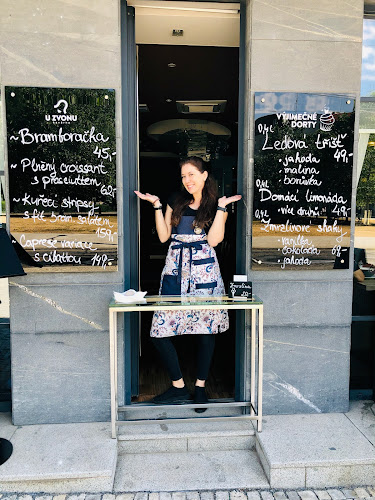 U ZVONU
~ Bramboračka
45,-
~ Plněný croissant
s prosciuttem 62,-
~ Kuřecí stripsy
s fit bram. salátem
159,-
Caprese variace
s ciabattou 149,-
VÝJIMEČNÉ
DORTY
0,4l
Ledová tříšť
• jahoda 49,-
• malina
• borůvka
0,4l
Domácí limonáda
• více druhů 49,-
Zmrzlinové shaky
• vanilka
• čokoláda
• jahoda